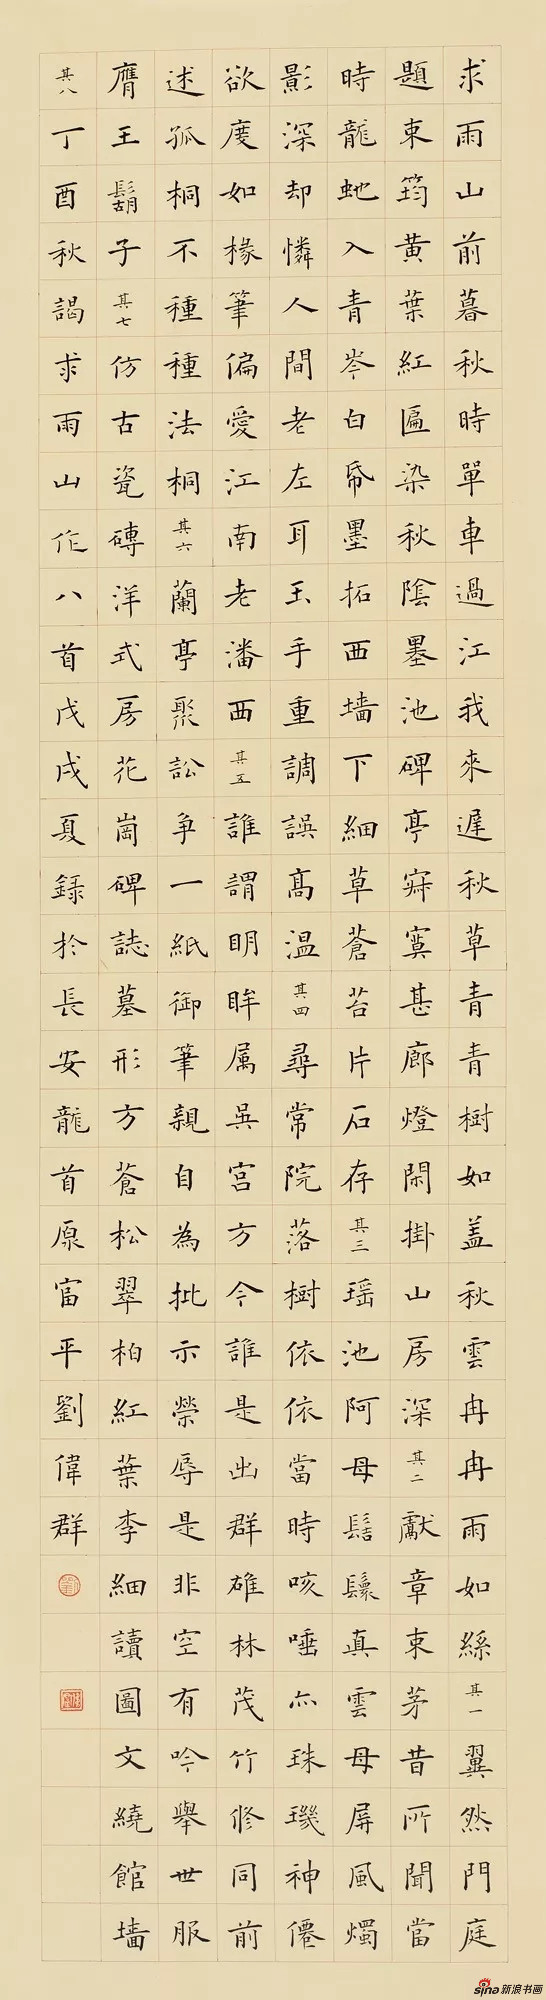 求雨山前暮秋時單車過江我來遲秋草青青樹如蓋秋雲冉冉雨如絲其一翼然門庭
題東筠黃葉紅匾染秋陰墨池碑亭寂寞甚廊燈閑掛山房深其二獻章束茅昔所聞當
時龍虵入青岑白帋墨拓西墙下細草蒼苔片石存其三瑶池阿母髻鬟真雲母屏風燭
影深却憐人間老左耳玉手重調誤高温其四尋常院落樹依依當時咳唾亦珠璣神僊
欲度如椽筆偏愛江南老潘西其五誰謂明眸属吳宮方今誰是出群雄林茂竹修同前
述孤桐不種種法桐其六蘭亭聚訟争一紙御筆親自為批示榮辱是非空有吟舉世服
膺王鬍子其七仿古瓷磚洋式房花崗碑誌墓形方蒼松翠柏紅葉李細讀圖文繞館墙
其八丁酉秋謁求雨山作八首戊戌夏録於長安龍首原富平劉偉群
sina新浪书画